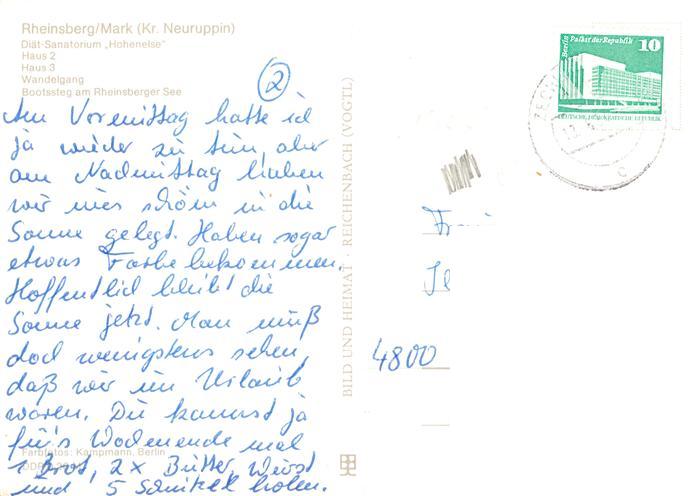 Rheinsberg/Mark (Kr. Neuruppin)
Diät-Sanatorium „Hohenelse"
Haus 2
Haus 3
Wandelgang
Bootssteg am Rheinsberger See
②
Am Vormittag hatte ich
ja wieder zu tun, aber
am Nachmittag haben
wir uns schön in die
Sonne gelegt. Haben sogar
etwas Farbe bekommen.
Hoffentlich bleibt die
Sonne jetzt. Man muß
doch wenigstens sehen,
daß wir im Urlaub
waren. Du kannst ja
für's Wochenende mal
1 Brot, 2x Butter, Wurst
und 5 Schnitzel holen.
Farbfotos: Kampmann, Berlin
BILD UND HEIMAT · REICHENBACH (VOGTL)
Berlin Palast der Republik
10
DEUTSCHE DEMOKRATISCHE REPUBLIK
C
4800